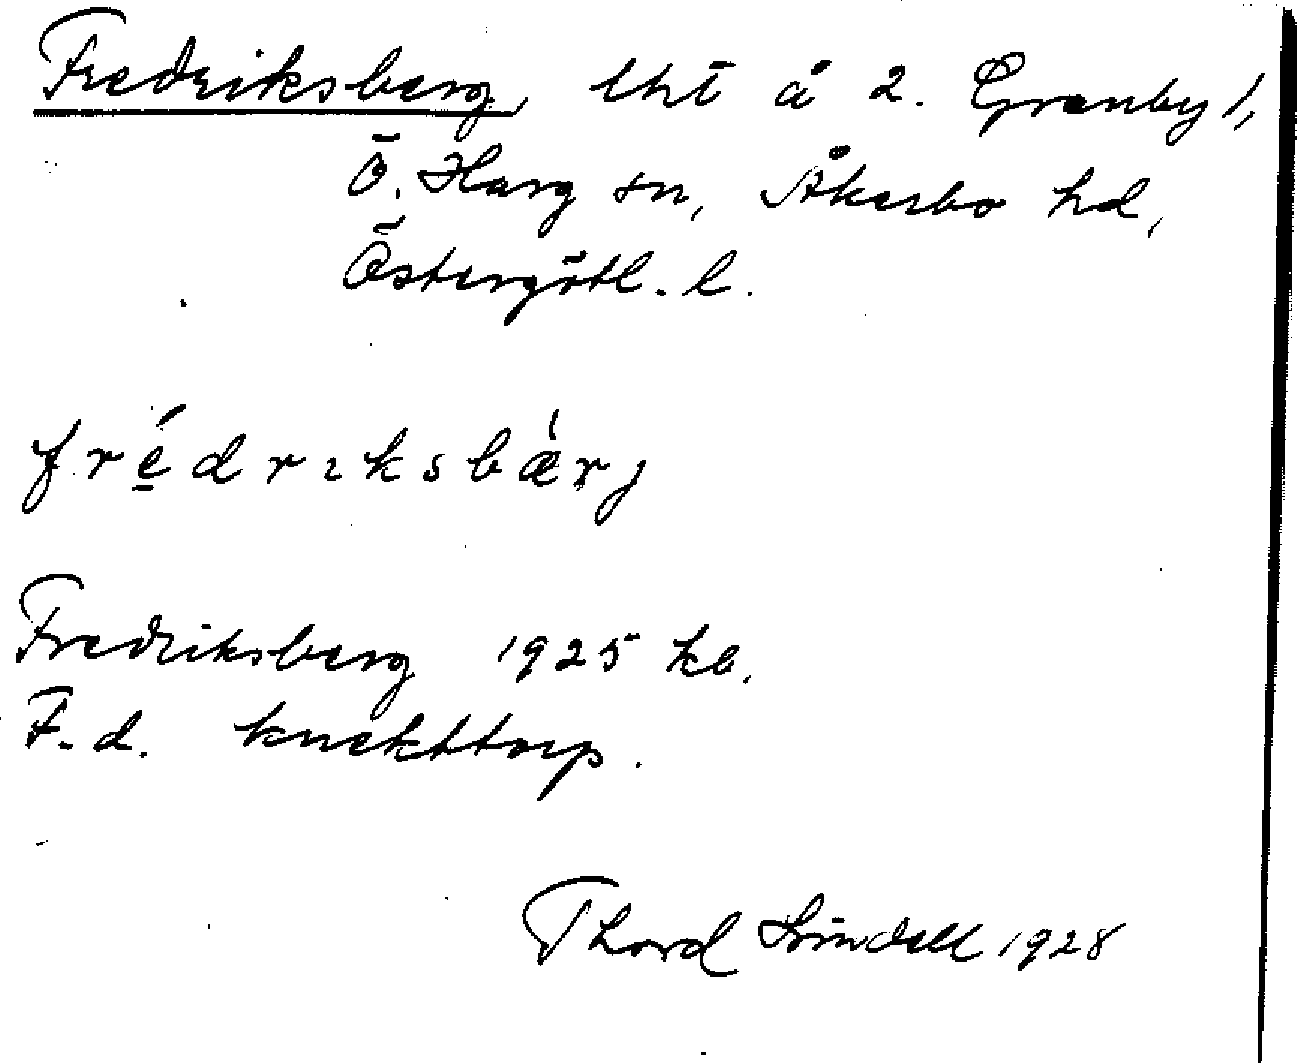 Fredriksberg, lht å 2. Granby 1,
Ö. Harg sn, Åkerbo hd,
Östergötl. l.
fréd rıksbæ̀rj
Fredriksberg 1925 kb.
F.d. knekttorp.
Thord 1928